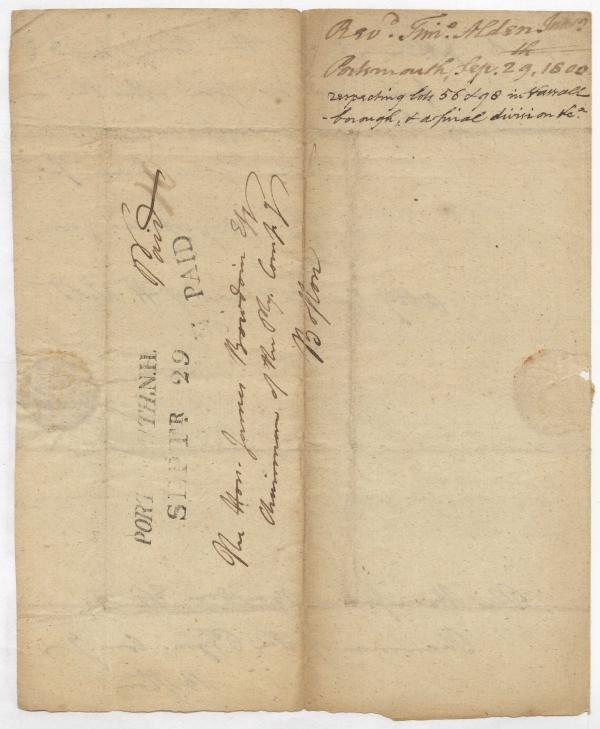 Rev.d Tim.o Alden Jun.r
Portsmouth, Sep. 29.th 1800
respecting lots 56 & 98 in Vassall
-borough, & a final division &c.a
Paid
PAID
PORT TH.N.H.
SEPTR 29
The Hon. James Bowdoin Esq
Chairman of the Ply. Comp.y
Boston